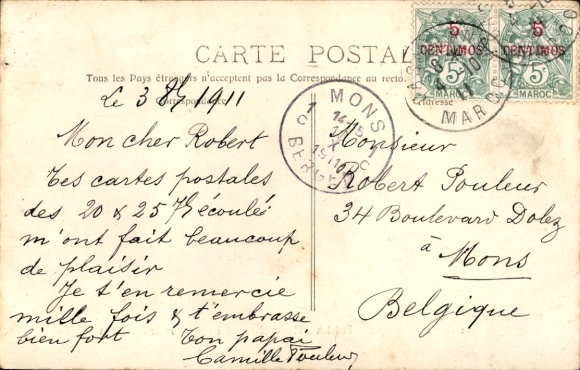 CARTE POSTALE
Tous les Pays étrangers n'acceptent pas la Correspondance au recto.
Correspondance
Adresse
5
CENTIMOS
5
MAROC
5
CENTIMOS
5
MAROC
MAROC
MONS
14-15
X
1911
BERGEN
Le 3 1911
Mon cher Robert
Tes cartes postales
des 20 & 25 écoulé
m'ont fait beaucoup
de plaisir
Je t'en remercie
mille fois & t'embrasse
bien fort Ton papa
Camille Pouleur
Monsieur
Robert Pouleur
34 Boulevard Dolez
à Mons
Belgique